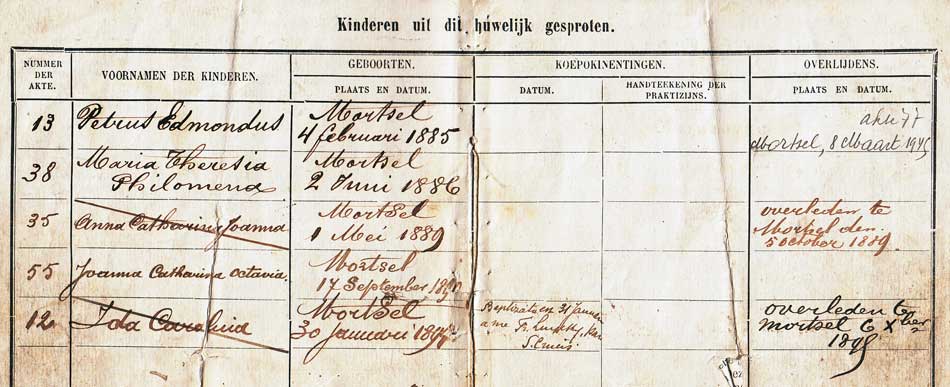 Kinderen uit dit huwelijk gesproten.
NUMMER DER AKTE. VOORNAMEN DER KINDEREN. GEBOORTEN. KOEPOKINENTINGEN. OVERLIJDENS.
PLAATS EN DATUM. DATUM. HANDTEEKENING DER PRAKTIZIJNS. PLAATS EN DATUM.
13 Petrus Edmondus Mortsel
4 februari 1885
Mortsel, 8 Maart
38 Maria Theresia Mortsel
Philomena 2 Juni 1886
35 Anna Catharina Joanna Mortsel
1 Mei 1889
overleden te
Mortsel den
5 october 1889.
55 Joanna Catharina Octavia. Mortsel
17 September
12 Ida Mortsel
30 Januari
overleden te
Mortsel 6 Xber